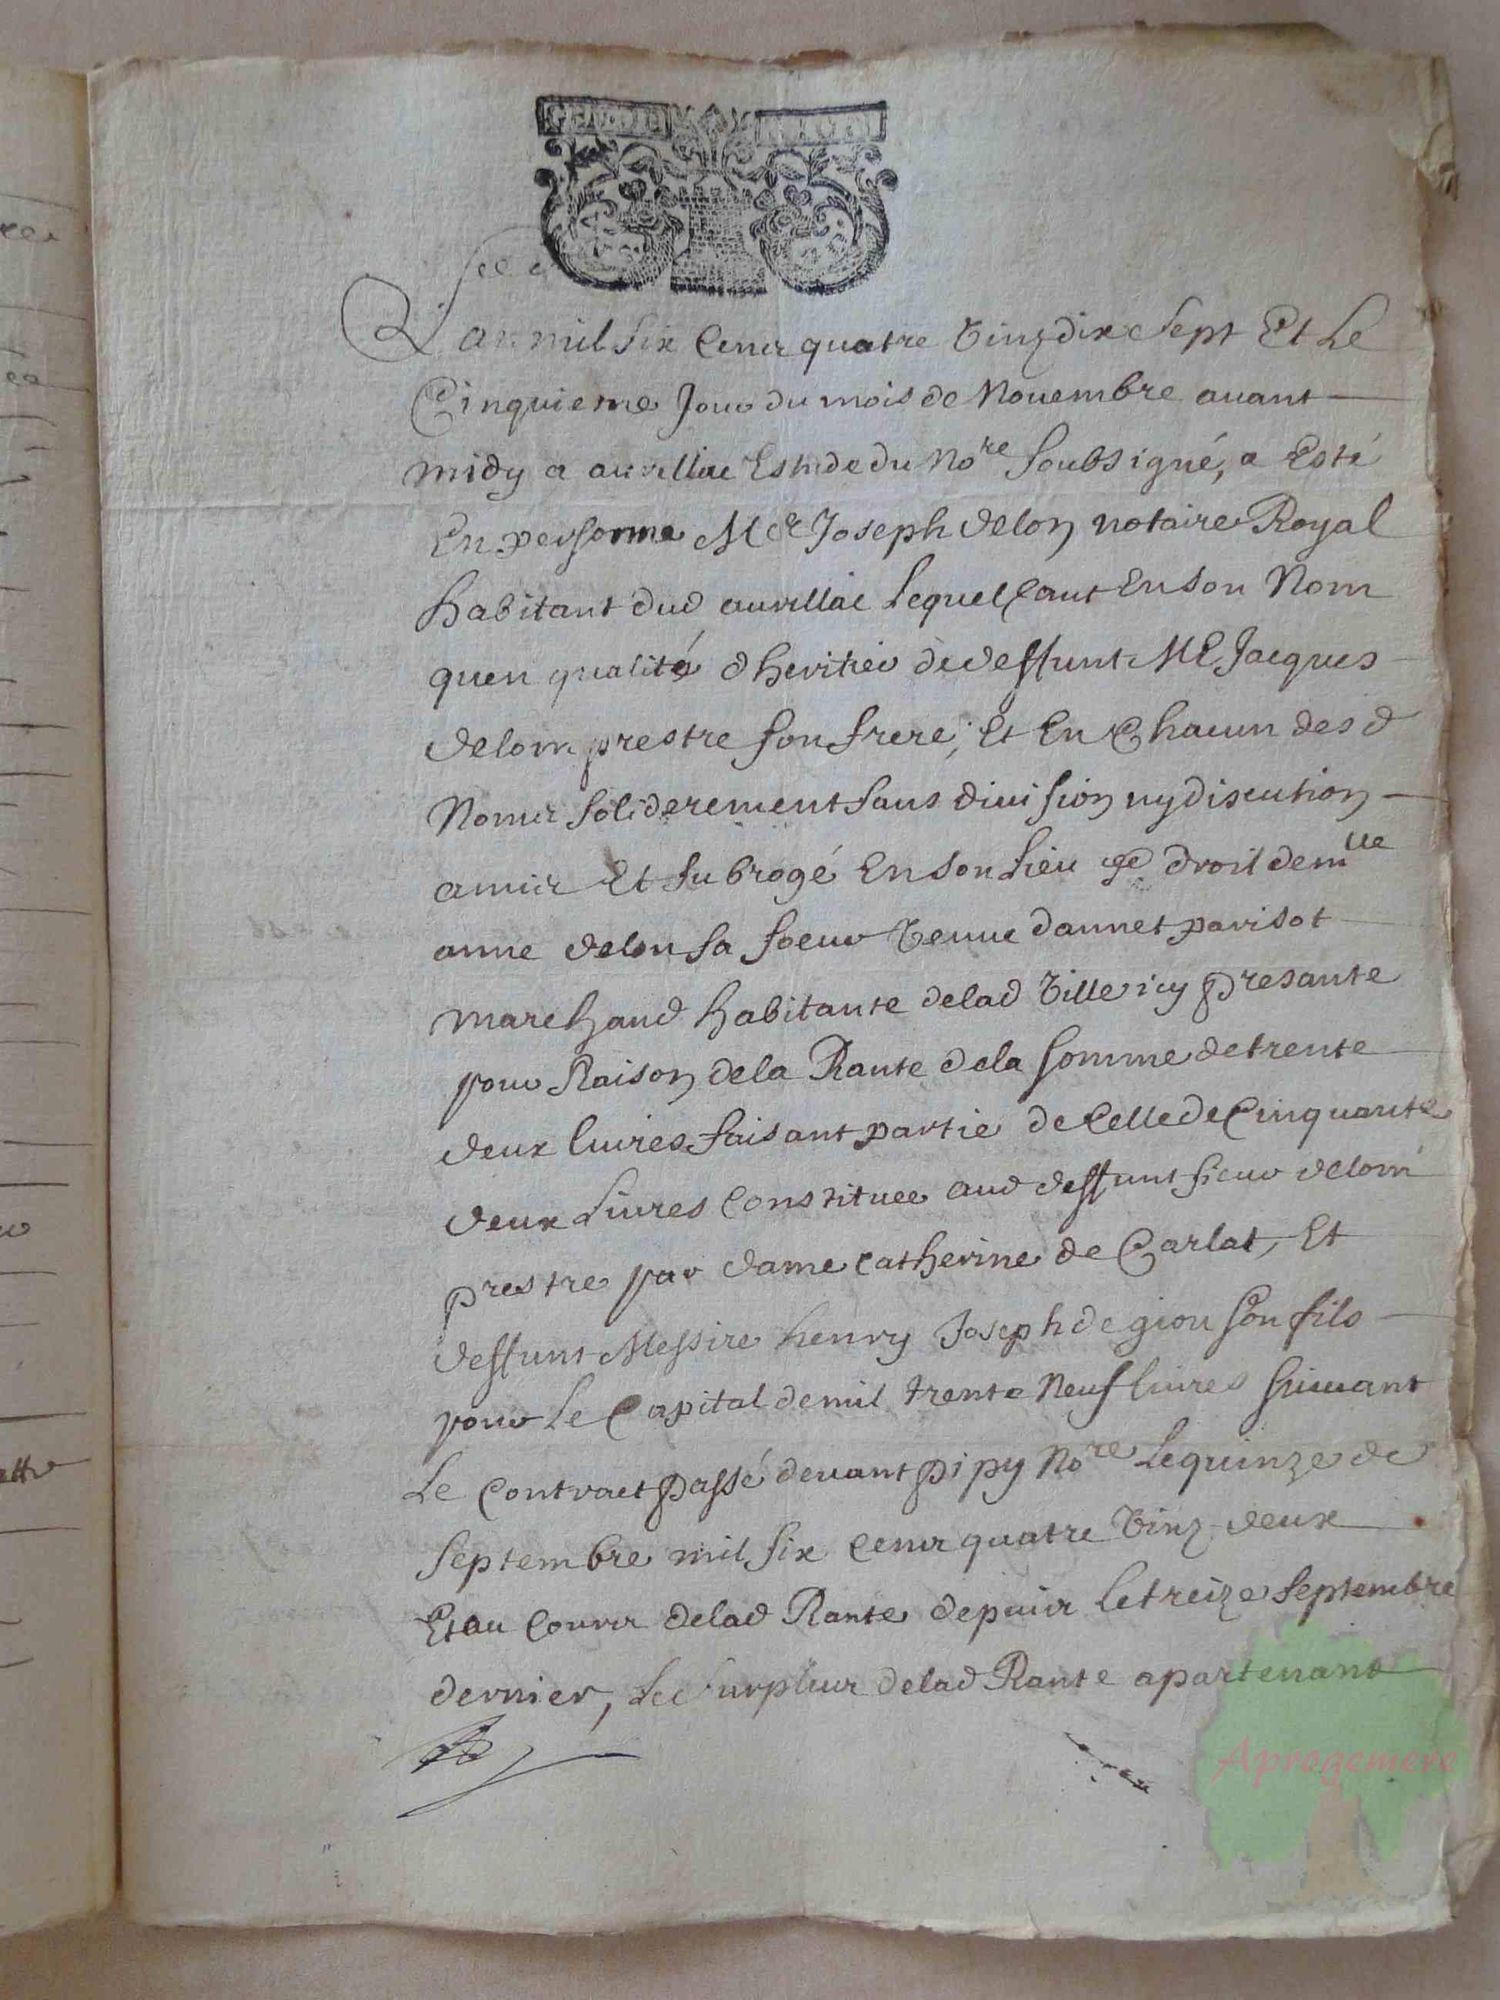 Lan mil six cens quatre vingz dix sept Et Le
Cinquieme Jour du mois de Nouembre auant
midy a aurillac Estude du No.re soubsigné, a Esté
En personne Me Joseph delom notaire Royal
habitant dud aurillac Lequel tant En son Nom
quen qualité dheritier de deffunt Me Jacques
delom prestre son frere, Et En Chacun desd
Noms soliderement sans diuision ny discution
a mis Et subrogé En son Lieu et droit de mlle
anne delon sa soeur veuue dannet parisot
marchand habitante delad Ville icy presante
pour Raison dela Rante dela somme de trente
deux liures faisant partie de Celle de Cinquante
deux Liures Constituee aud deffunt sieur delom
prestre par dame Catherine de Carlat, Et
deffunt Messire henry Joseph de giou son fils
pour Le Capital de mil trente Neuf liures suiuant
Le Contract passé deuant pipy No.re Le quinze de
septembre mil six cens quatre vinz deux
Et au Cours delad Rante depuis Le treize septembre
dernier, Le surplus delad Rante apartenant
Aprogemere